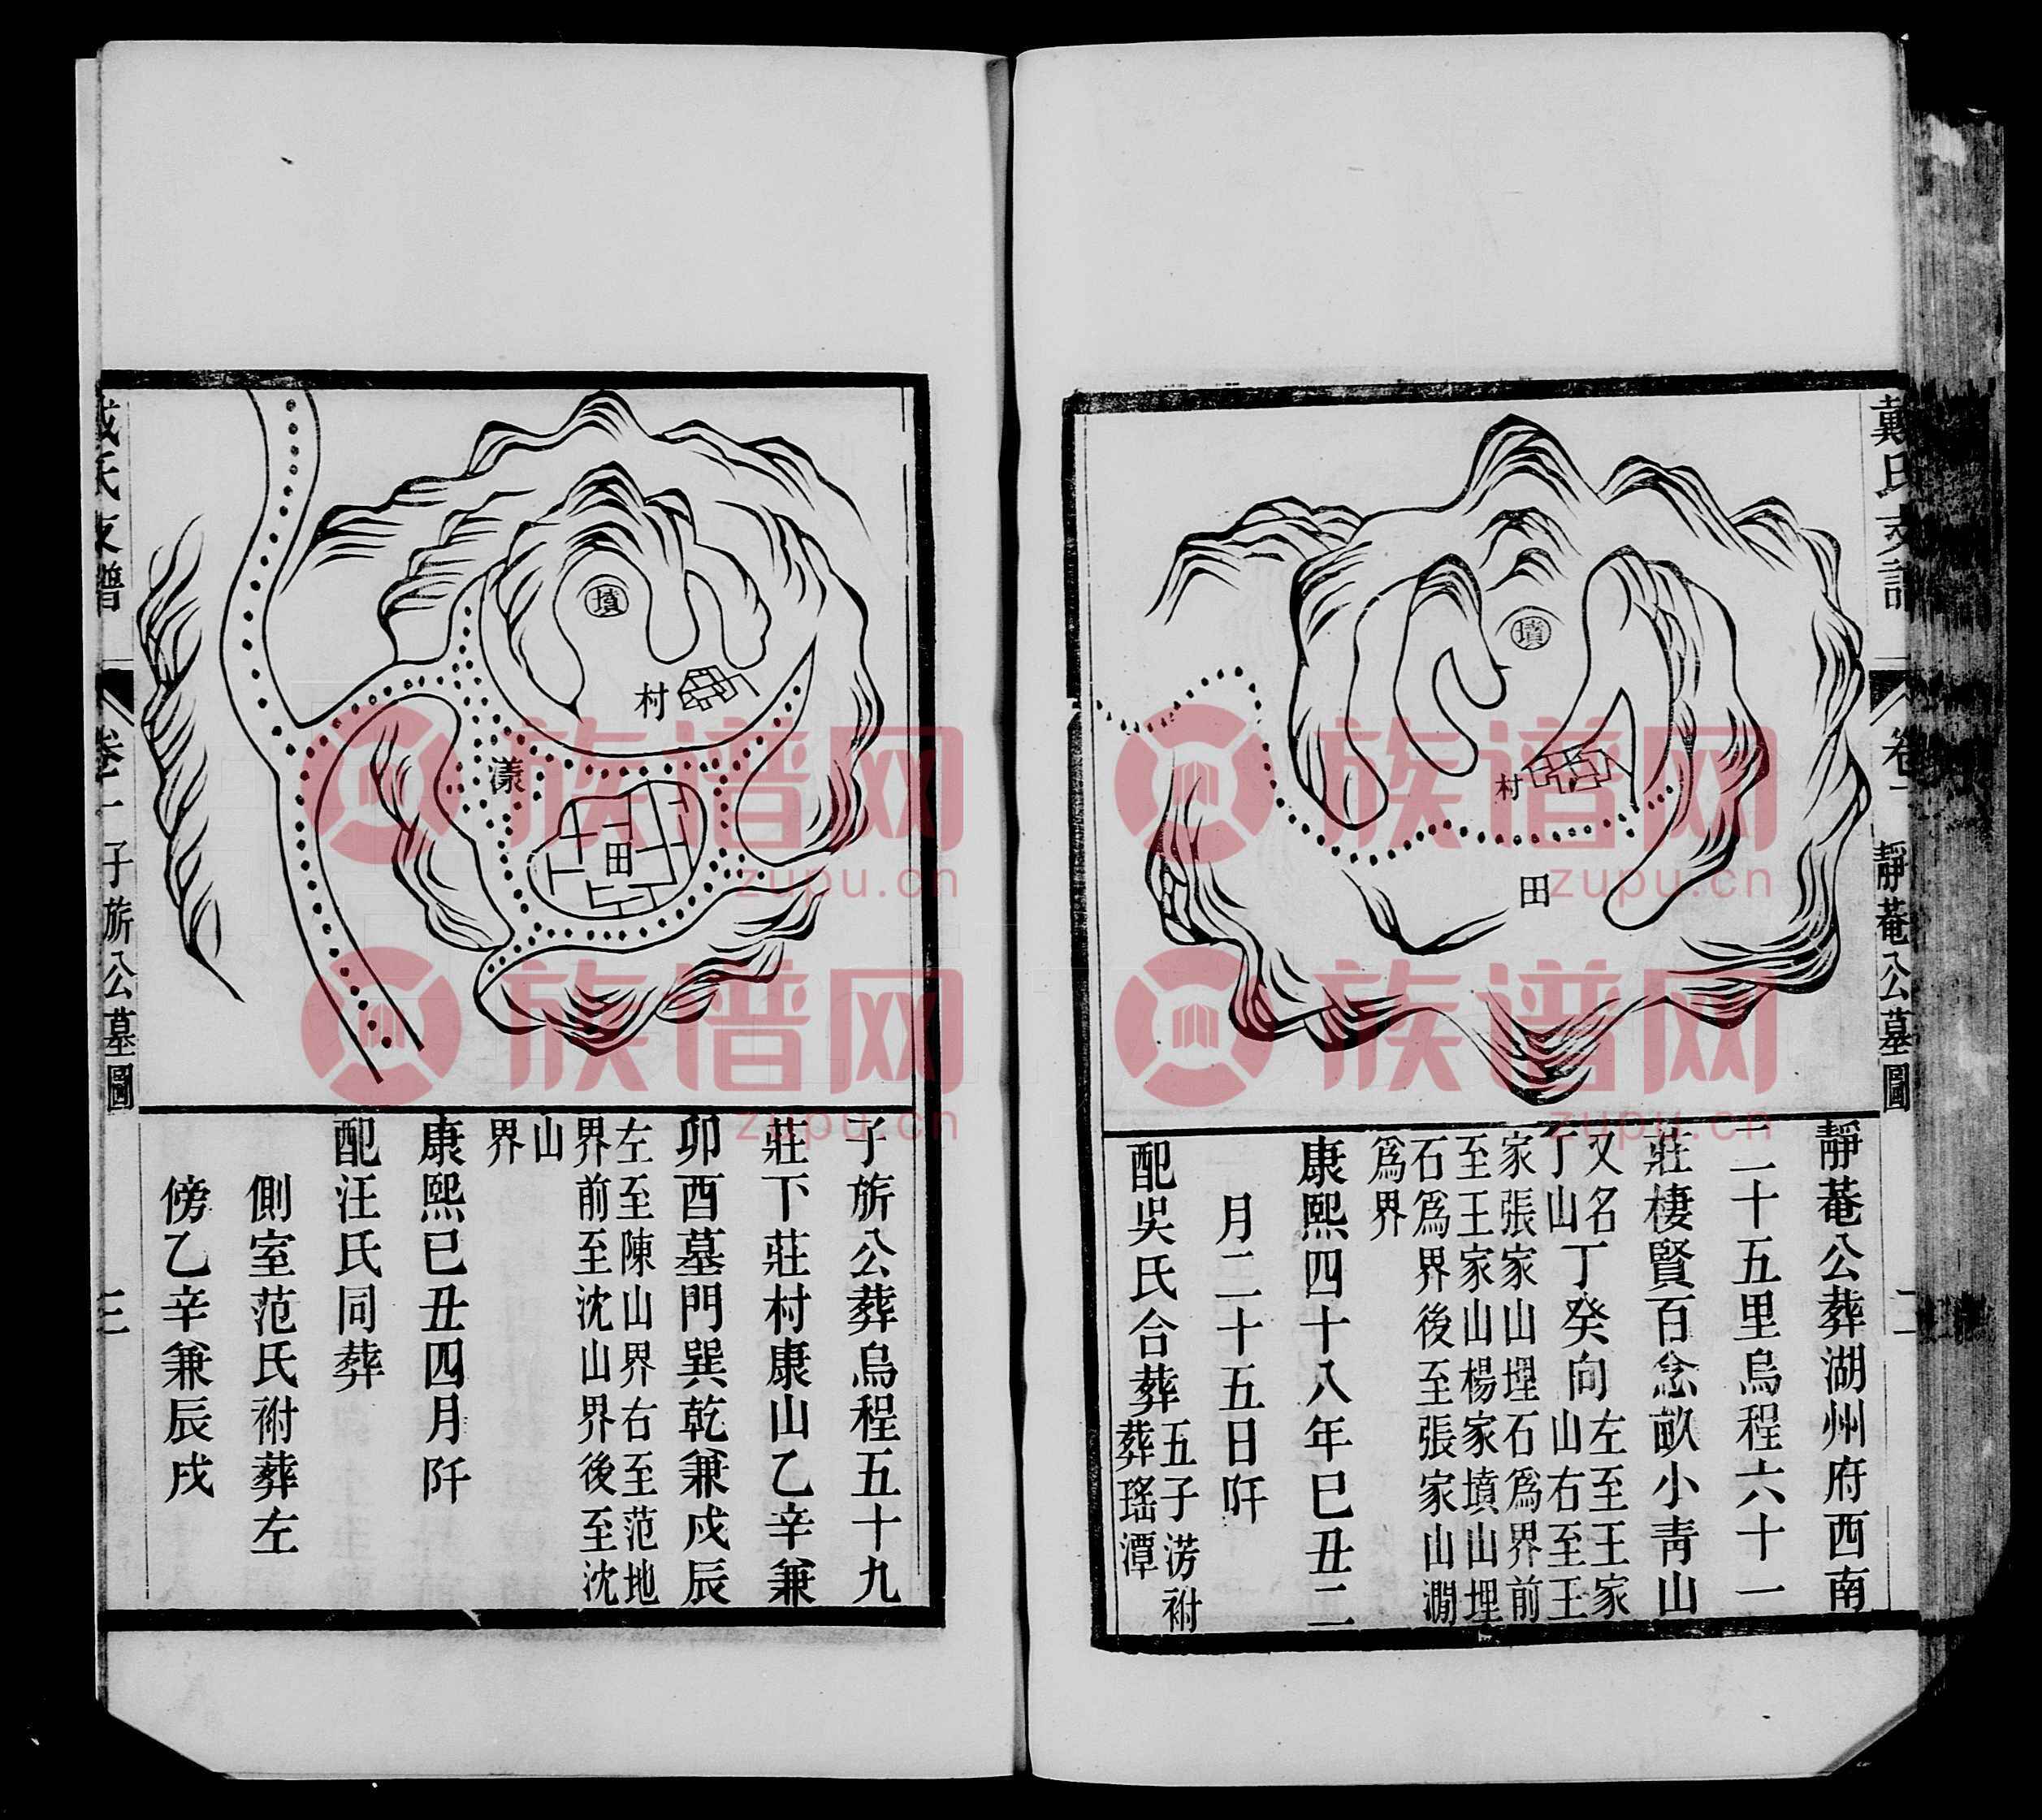 戴氏支譜
卷一
靜菴公墓圖
二
墳
村
田
靜菴公葬湖州府西南
二十五里烏程六十一
莊棲賢百念畝小青山
又名
丁山
丁癸向
左至王家
山右至王
家張家山埋石爲界前
至王家山楊家墳山埋
石爲界後至張家山澗
爲界
康熙四十八年已丑二
月二十五日阡
配吳氏合葬
五子涝祔
葬瑤潭
戴氏支譜
卷一
子旂公墓圖
三
墳
村
漾
田
子旂公葬烏程五十九
莊下莊村康山乙辛兼
卯酉墓門巽乾兼戌辰
左至陳山界右至范地
界前至沈山界後至沈
山
界
康熙已丑四月阡
配汪氏同葬
側室范氏祔葬左
傍乙辛兼辰戌
族谱网
zupu.cn
族谱网
zupu.cn
族谱网
zupu.cn
族谱网
zupu.cn